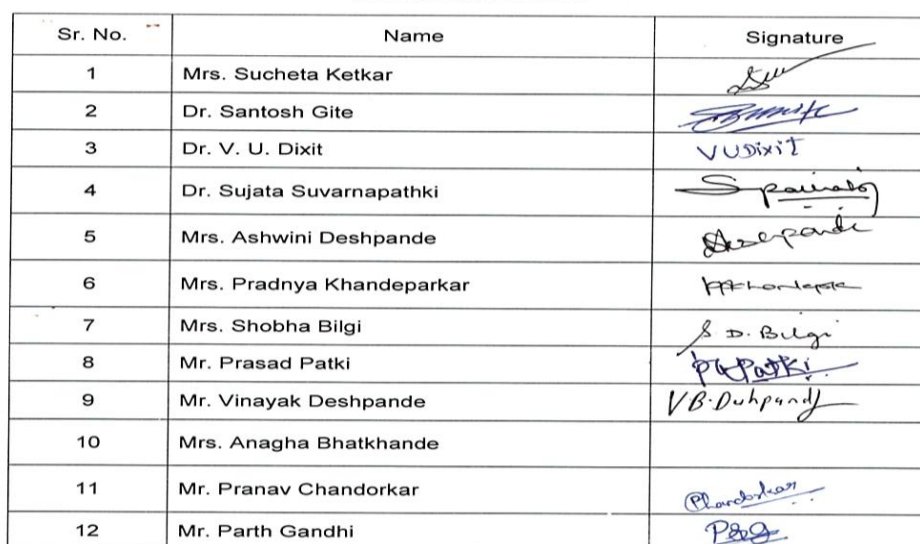 Sr. No. Name Signature
1 Mrs. Sucheta Ketkar
2 Dr. Santosh Gite
3 Dr. V. U. Dixit VUDixit
4 Dr. Sujata Suvarnapathki
5 Mrs. Ashwini Deshpande
6 Mrs. Pradnya Khandeparkar
7 Mrs. Shobha Bilgi S. D. Bilgi
8 Mr. Prasad Patki
9 Mr. Vinayak Deshpande
10 Mrs. Anagha Bhatkhande
11 Mr. Pranav Chandorkar
12 Mr. Parth Gandhi